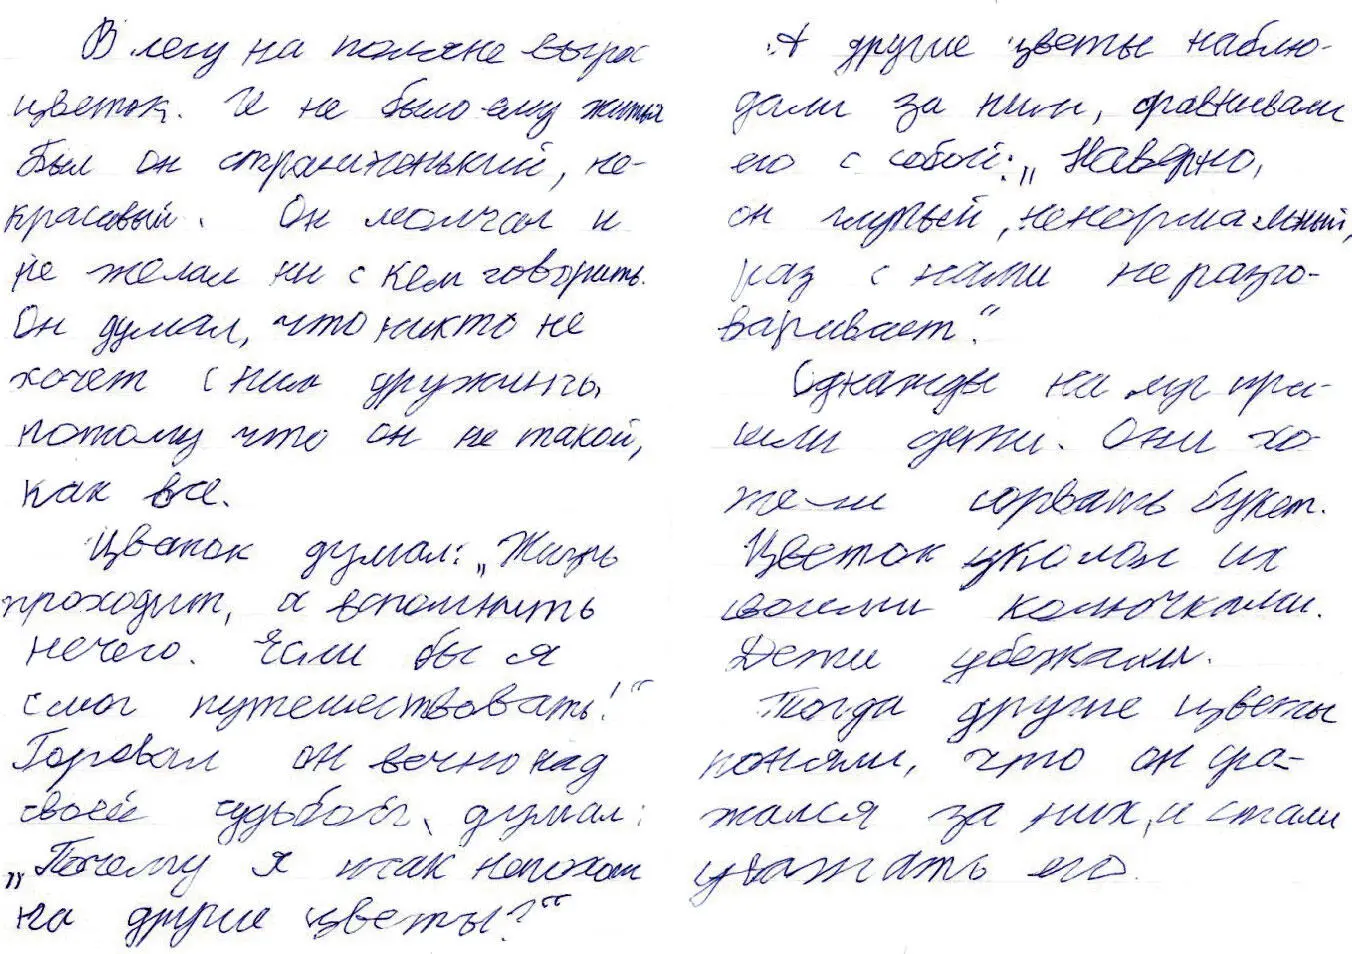 В лесу на поляне вырос
цветок. И не было ему житья
Был он страшненький, не-
красивый. Он молчал и
не желал ни с кем говорить.
Он думал, что никто не
хочет с ним дружить,
потому что он не такой,
как все.
Цветок думал: „Жизнь
проходит, а вспомнить
нечего. Если бы я
смог путешествовать!“
Горевал он вечно над
своей судьбой, думал:
„Почему я так непохож
на другие цветы?“
А другие цветы наблю-
дали за ним, сравнивали
его с собой: „Наверно,
он глупый, ненормальный,
раз с нами не разго-
варивает.“
Однажды на луг при-
шли дети. Они хо-
тели сорвать букет.
Цветок уколол их
своими колючками.
Дети убежали.
Тогда другие цветы
поняли, что он сра-
жался за них, и стали
уважать его.